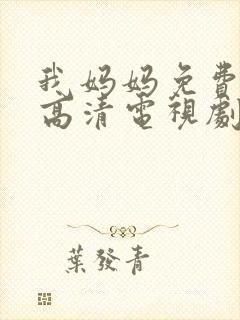 我妈妈免費
高清電視劇
葉發青